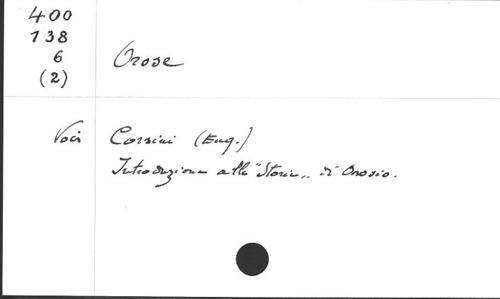 400
138
6
(2)
Orose
Voir Corsini (Eug.)
Introduzione alle "Storie„ di Orosio.